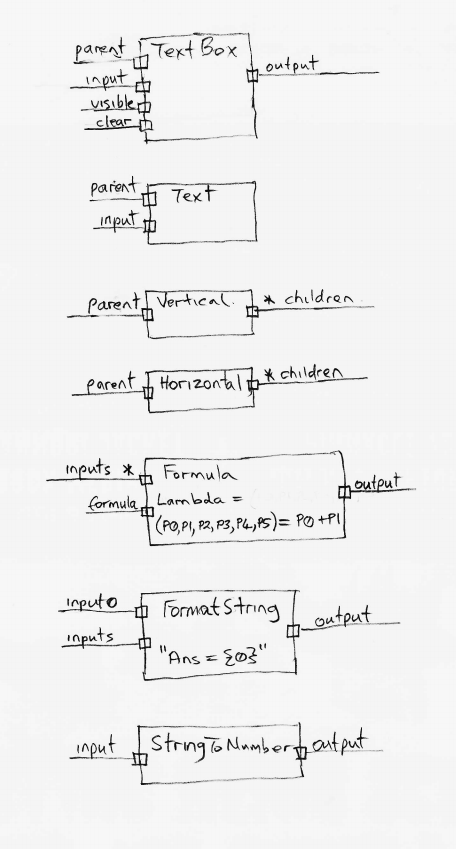 parent
Text Box
output
input
visible
clear
parent
Text
input
parent
Vertical.
* children
parent
Horizontal,
* children
inputs *
Formula
output
formula
Lambda =
(P0,P1,P2,P3,P4,P5)= P0+P1
input0
FormatString
output
inputs
"Ans = {0}"
input
StringToNumber
output